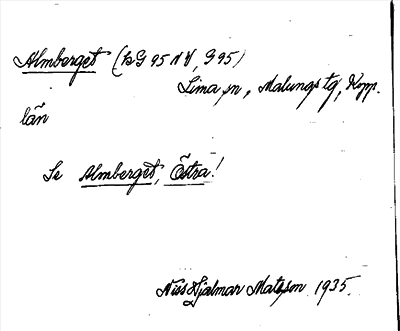 Almberget (bG 95 NV, G95)
Lima sn, Malungs tg, Kopp.
län
Se Almberget, Östra!
Nils Hjalmar Matsson 1935.